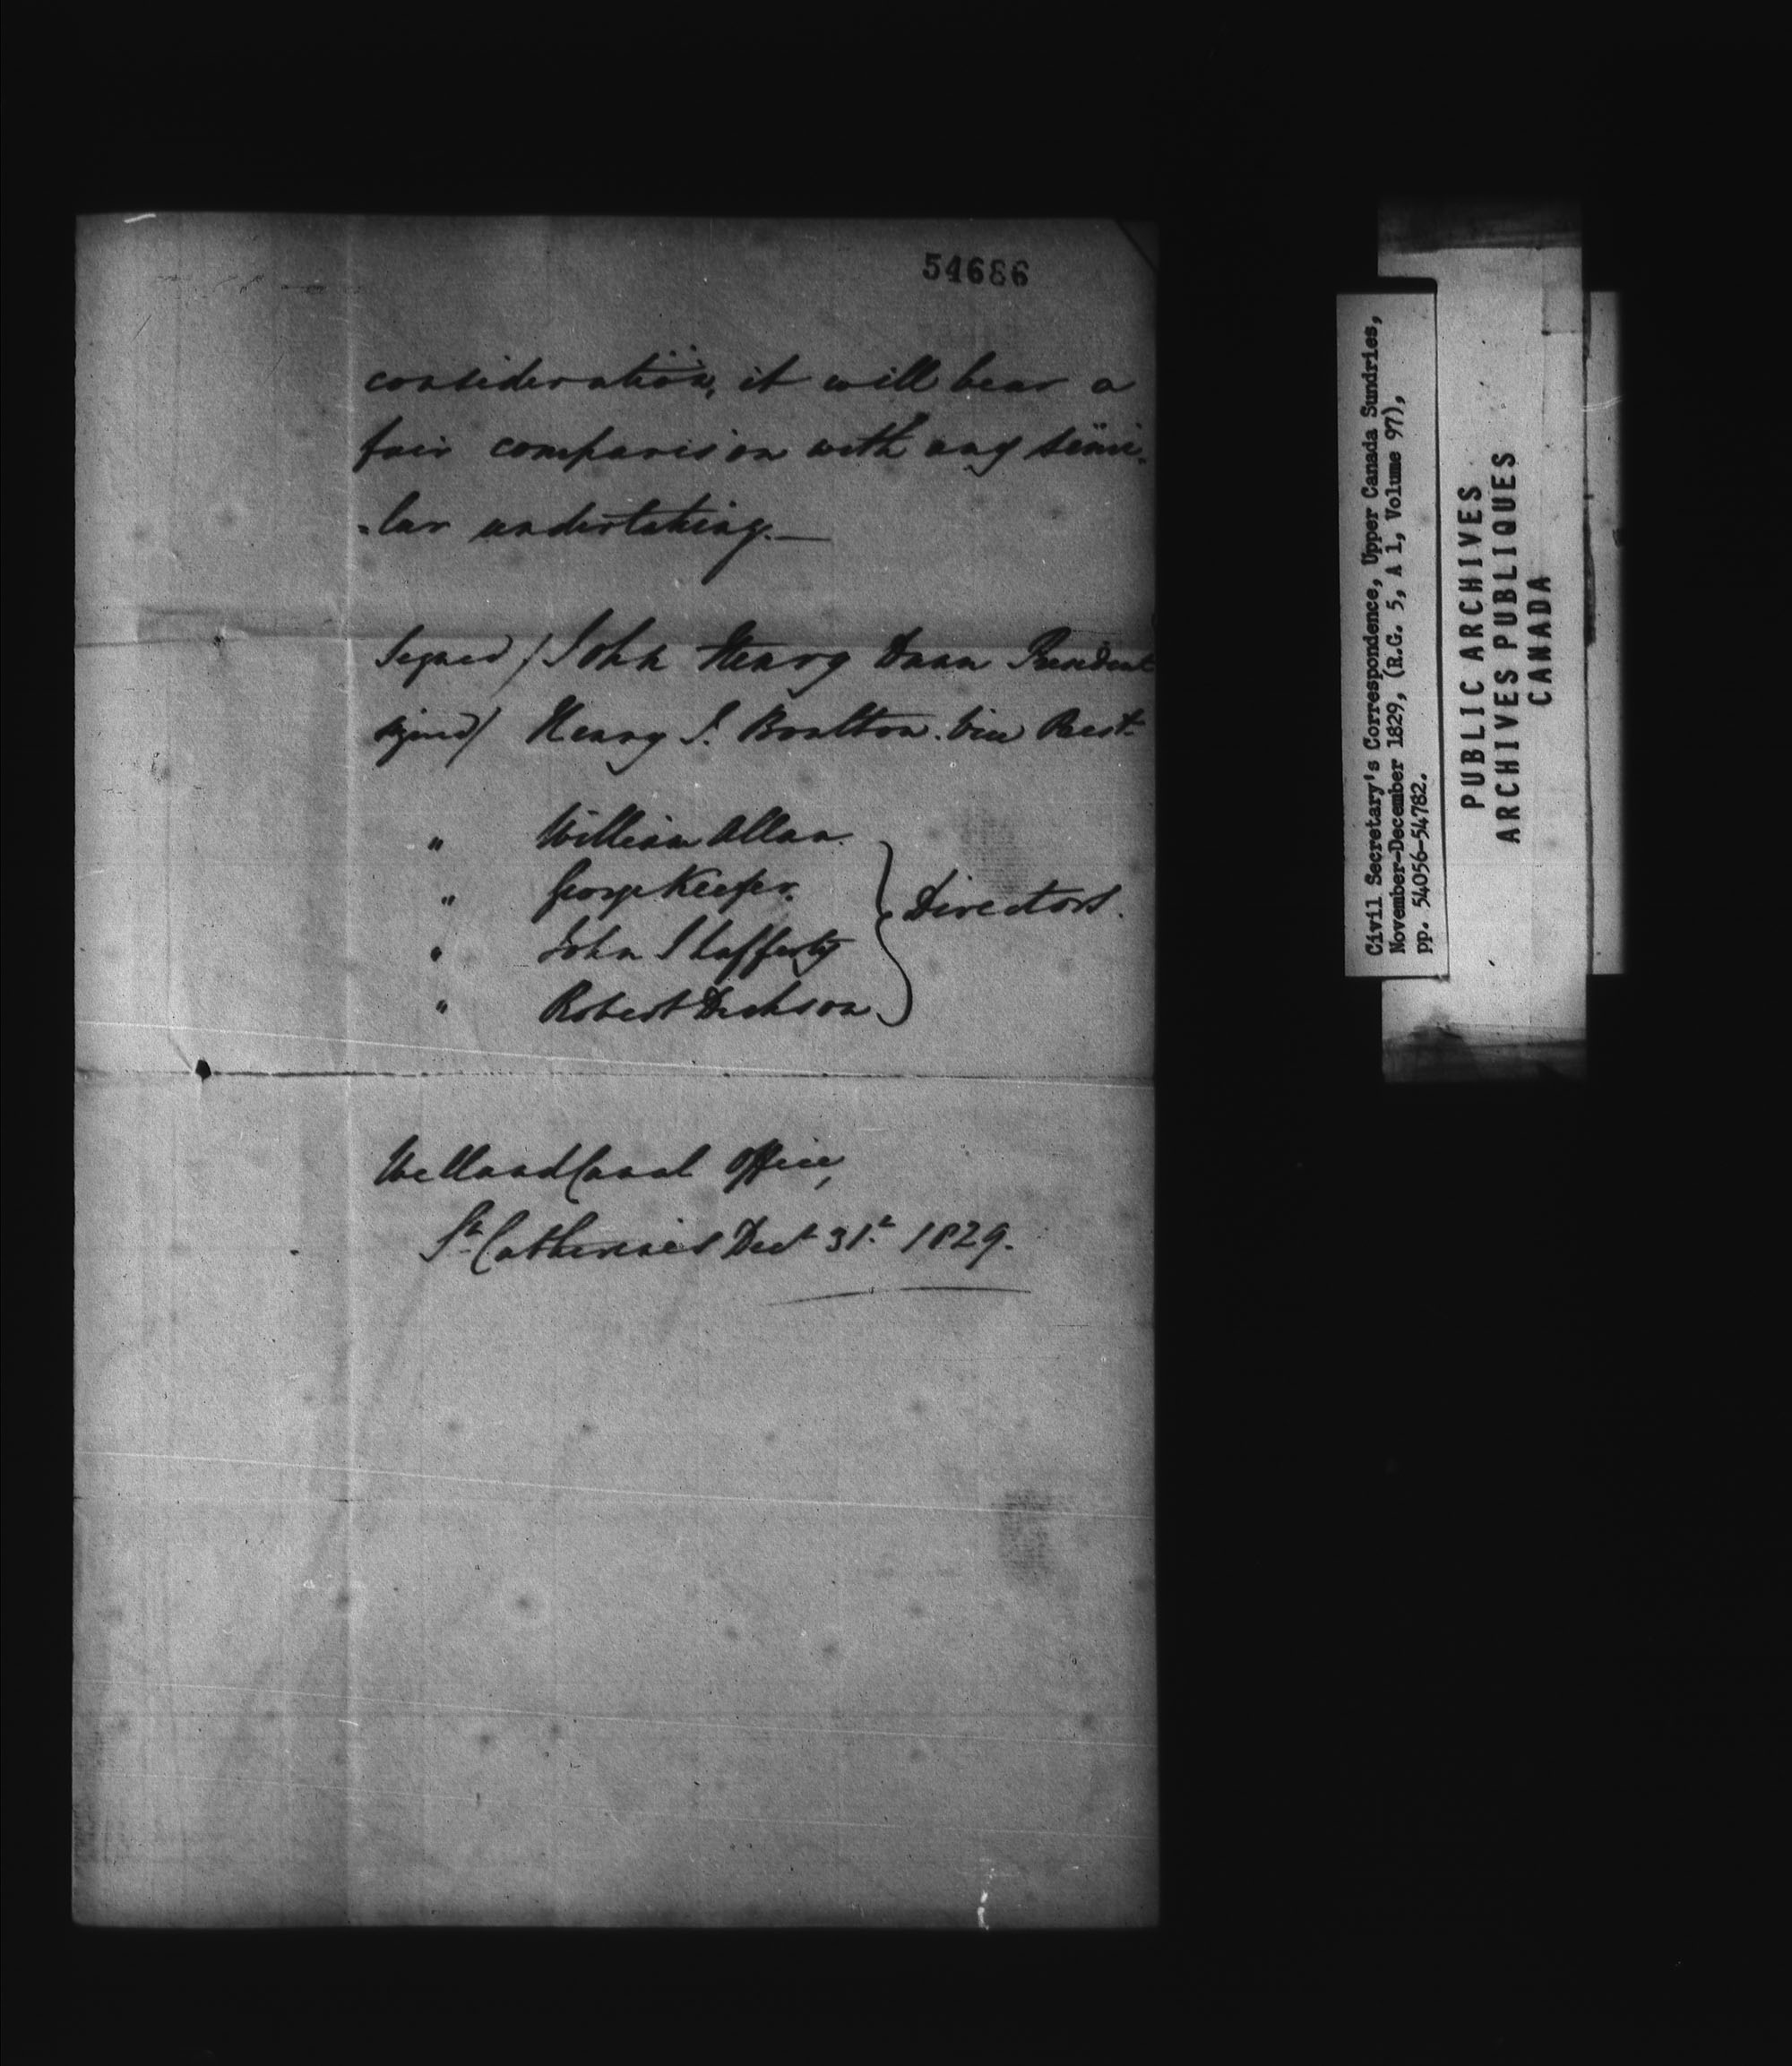 54686
consideration, it will bear a
fair comparison with any simi-
-lar undertaking.—
Signed / John Henry Dunn President
signed / Henry J. Boulton. Vice Prest.
" William Allan.
" George Keefer.
" John J Lafferty
" Robert Dickson
Directors.
Welland Canal Office,
St. Catherines Decr 31st 1829.
Civil Secretary's Correspondence, Upper Canada Sundries,
November-December 1829, (R.G. 5, A 1, Volume 97),
pp. 54056-54782.
PUBLIC ARCHIVES
ARCHIVES PUBLIQUES
CANADA